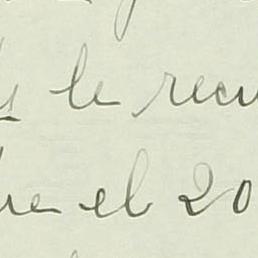 le recu
re el 20